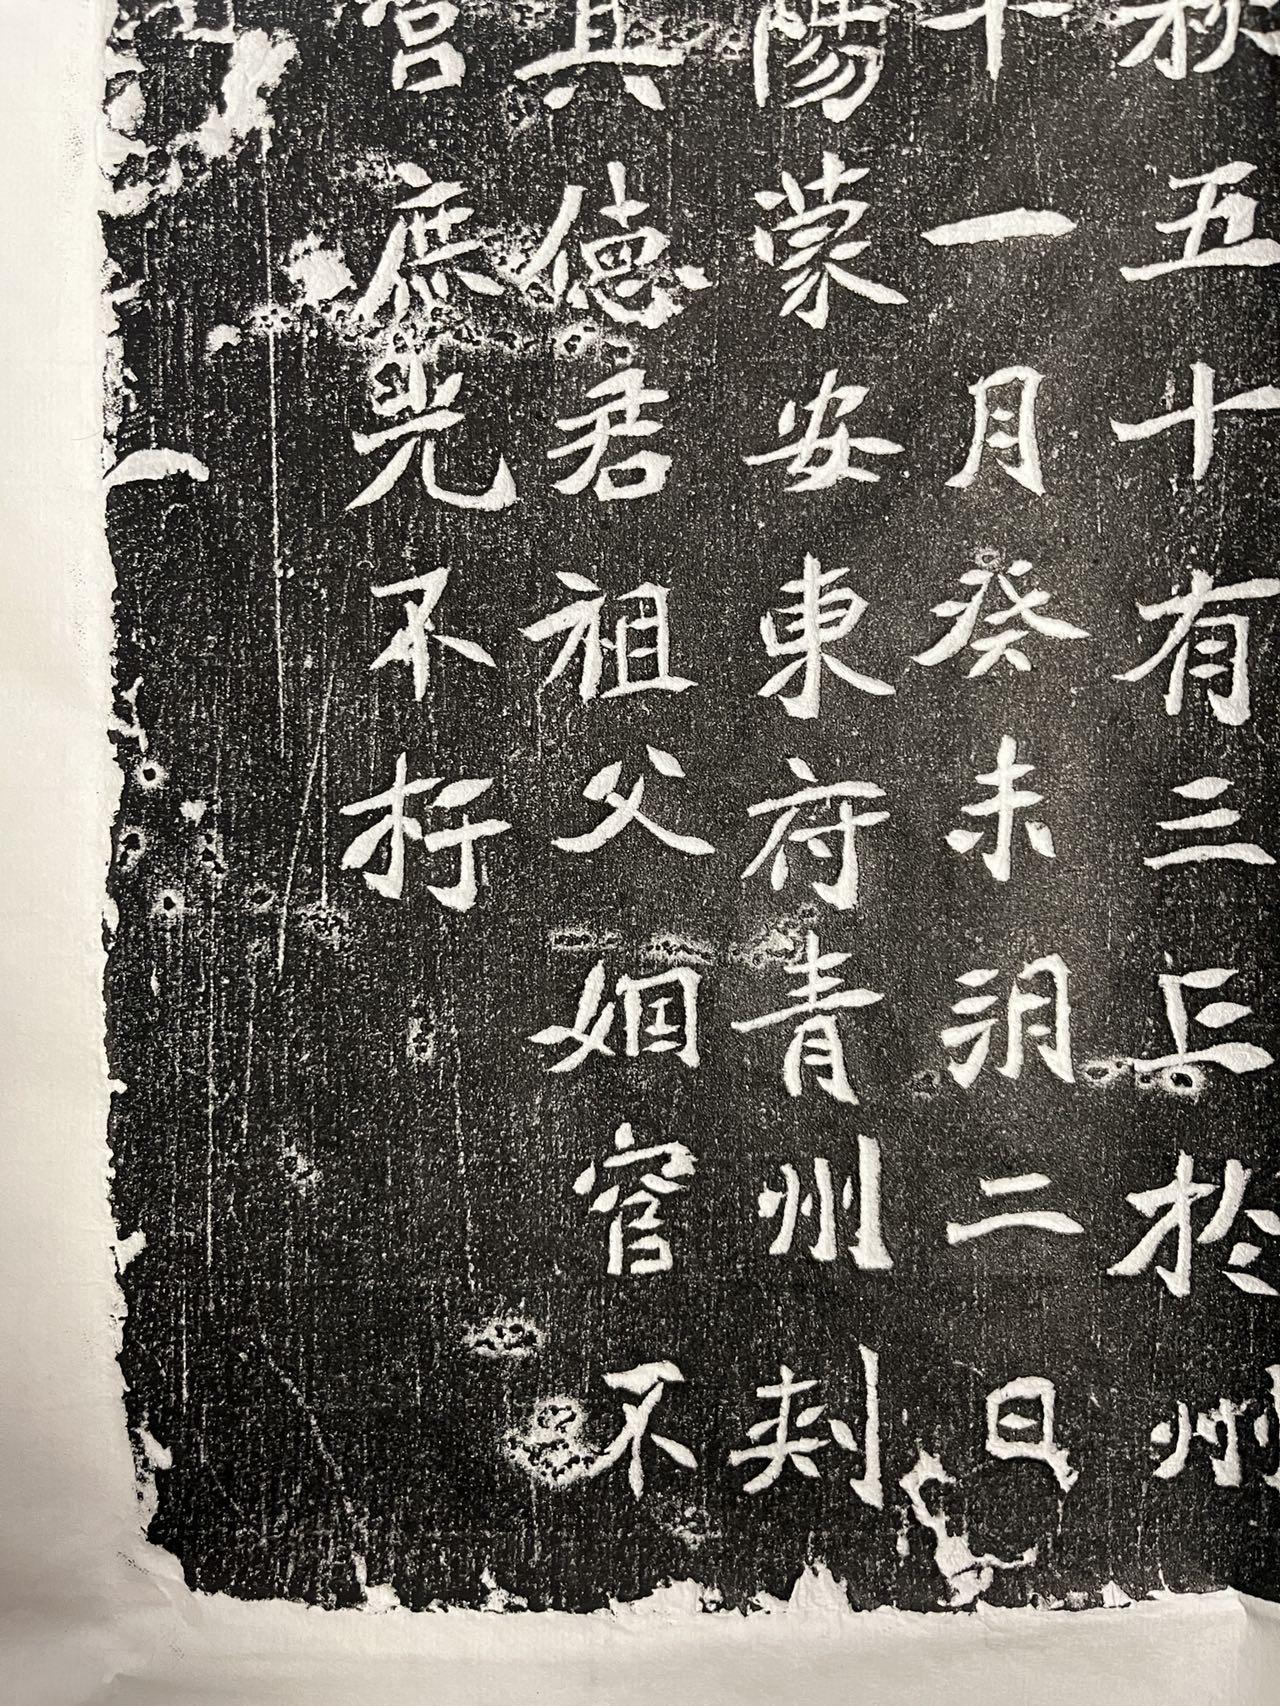 秋五十有三亡於州
十一月癸未朔二日
陽蒙安東府青州刺
其德君祖父姻官不
宮庶光不朽